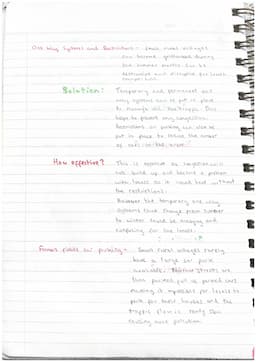 One way systems and Restrictions: Small rural villages
can become gridlocked during
the summer months. Can be
destructive and disruptive for locals
Solution: Temporary and permanent one
way systems can be put in place
to manage the traffic. This
helps to prevent any congestion.
Restrictions on parking can also be
put in place to reduce the amount
of cars in the area.
How effective? This is effective as congestion will
not build up and become a problem
with locals as it would have without
the restrictions.
However the temporary one way
systems that change from summer
to winter could be annoying and
confusing for the locals.
Formal places for parking - Small rural villages rarely
have a large car park
available. Narrow streets are
then packed full of parked cars
making it impossible for locals to
park for their homes and the
traffic flow is really slow
causing more pollution.